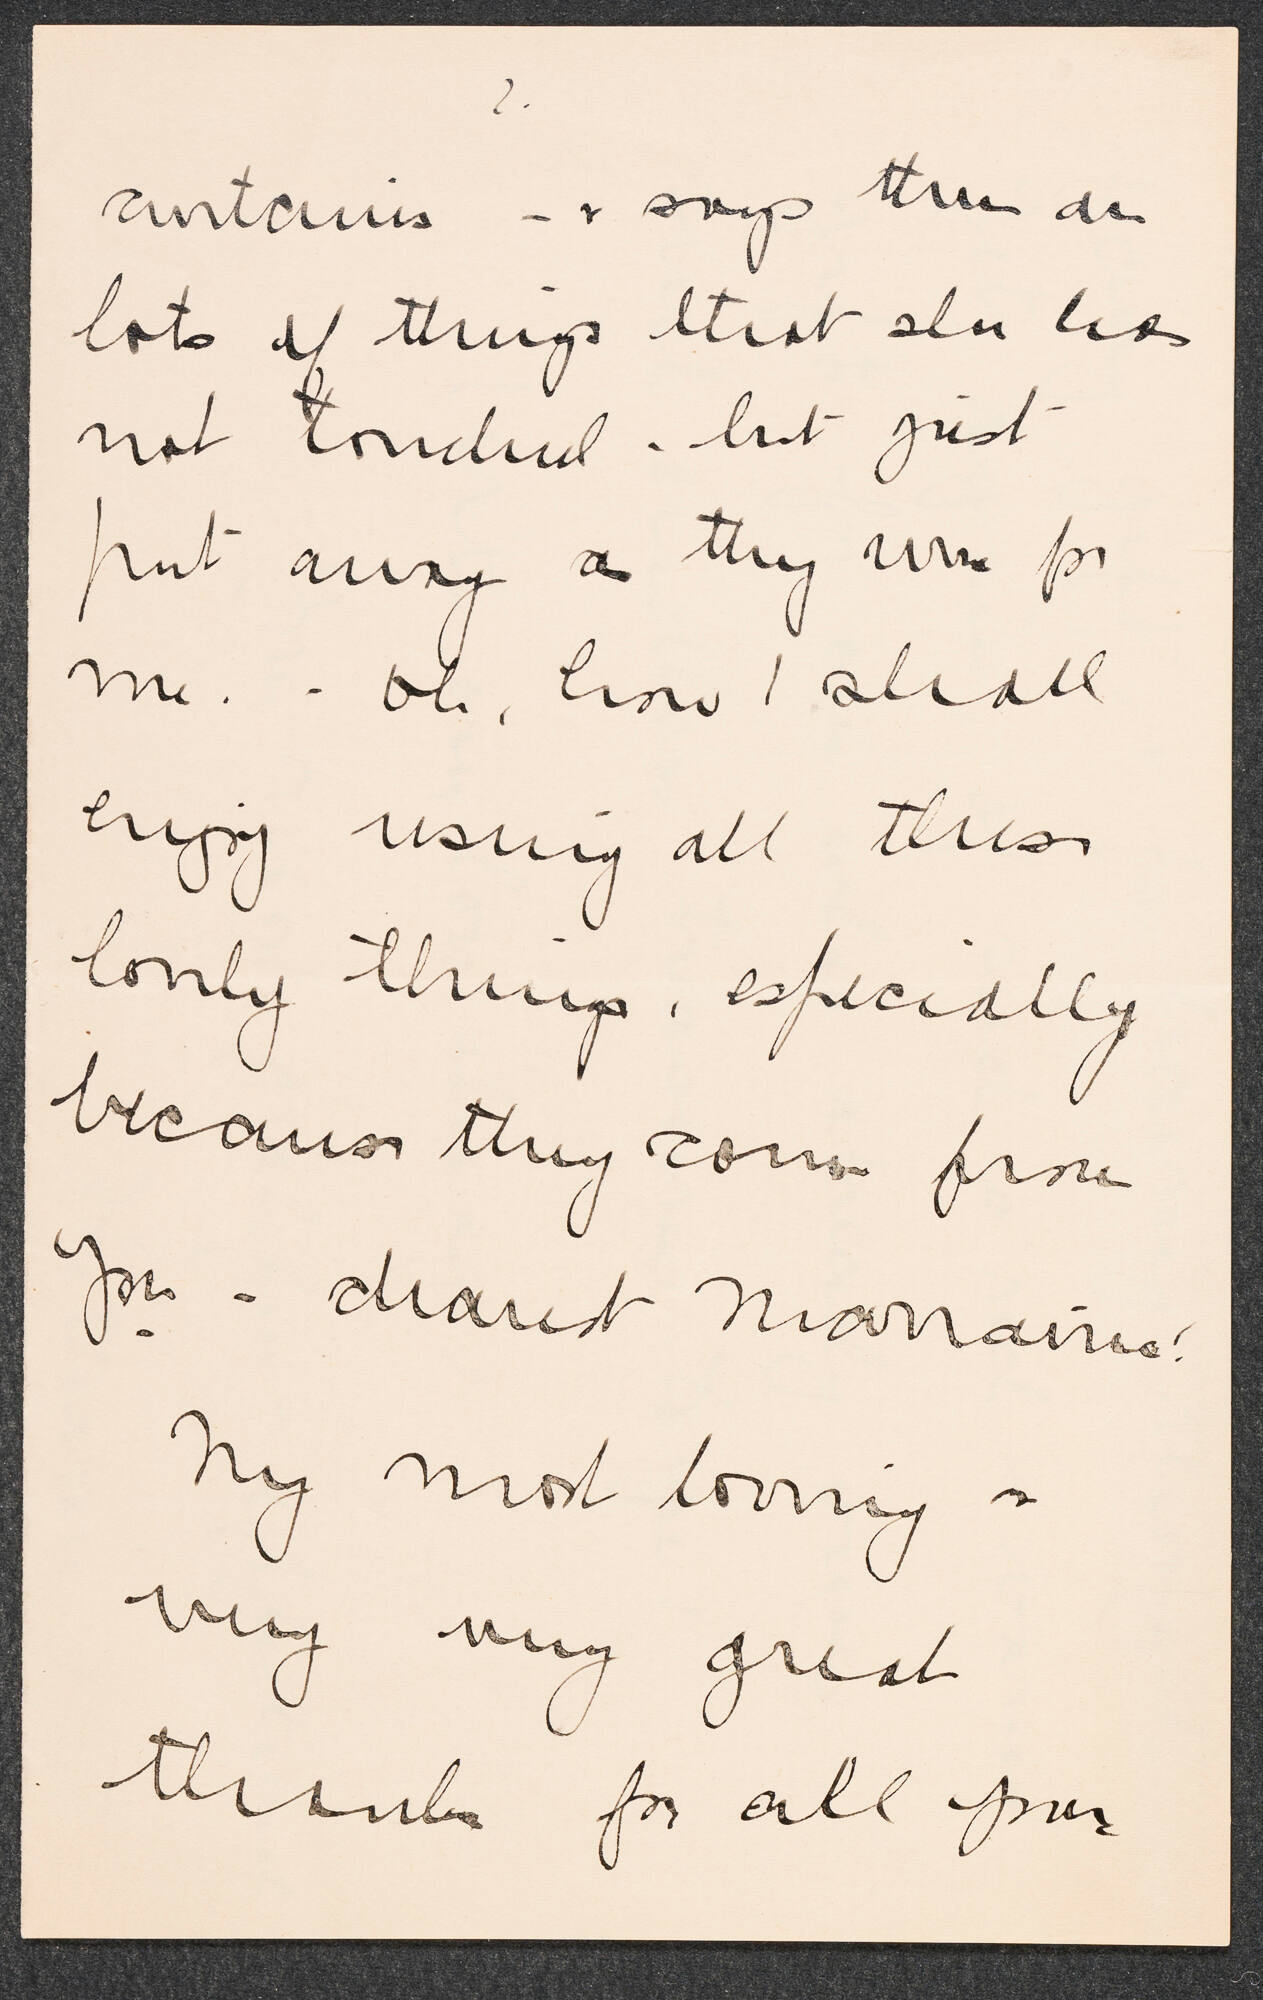 2.
curtains - & says there are
lots of things that she has
not touched - but just
put away as they were for
me. - Oh, how I shall
enjoy using all these
lovely things, especially
because they come from
you - dearest Marraine!
My most loving &
very very great
thanks for all your